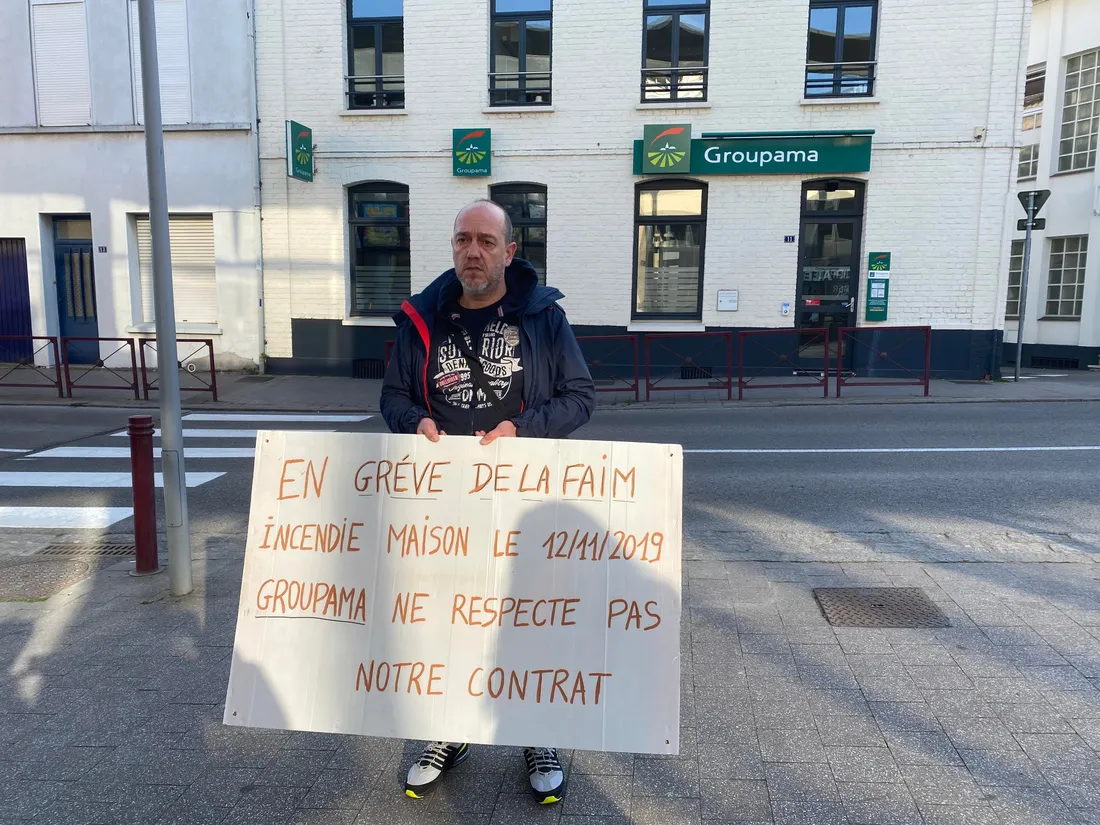 Groupama
Groupama
11
13
SUPERIOR
GOODS
EN GRÉVE DE LA FAIM
INCENDIE MAISON LE 12/11/2019
GROUPAMA NE RESPECTE PAS
NOTRE CONTRAT